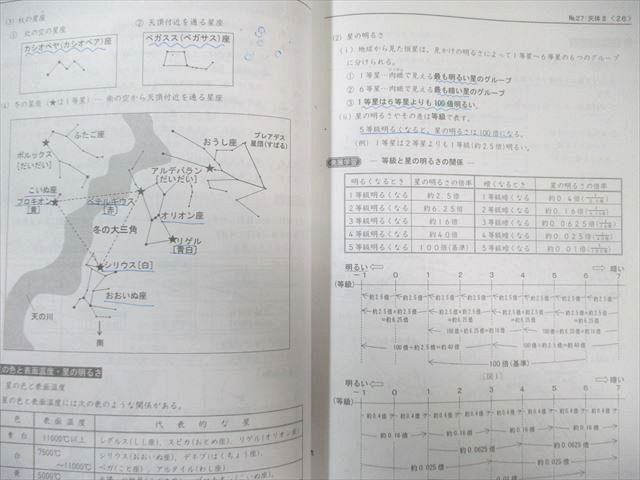 (3) 秋の星座
① 北の空の星座
② 天頂付近を通る星座
カシオペヤ(カシオペア)座
ペガスス(ペガサス)座
(4) 冬の星座 (★は1等星) ― 南の空から天頂付近を通る星座
ふたご座
ポルックス
[だいだい]
おうし座
プレアデス
星団(すばる)
アルデバラン
[だいだい]
こいぬ座
プロキオン
[黄]
ベテルギウス
[赤]
オリオン座
冬の大三角
リゲル
[青白]
シリウス[白]
おおいぬ座
天の川
南
の色と表面温度・星の明るさ
星の色と表面温度
星の色と表面温度には次の表のような関係がある。
色 表面温度 代表的な星
青白 11000℃以上 レグルス(しし座)、スピカ(おとめ座)、リゲル(オリオン座)
白 7500℃ シリウス(おおいぬ座)、デネブ(はくちょう座)、
～11000℃ ベガ(こと座)、アルタイル(わし座)
黄 5000℃
№27:天体Ⅱ〈26〉
(2) 星の明るさ
(ⅰ) 地球から見た恒星は、見かけの明るさによって1等星～6等星の6つのグループ
に分けられる。
① 1等星…肉眼で見える最も明るい星のグループ
② 6等星…肉眼で見える最も暗い星のグループ
③ 1等星は6等星よりも100倍明るい。
(ⅱ) 星の明るさやその差は等級で表す。
5等級明るくなると、星の明るさは100倍になる。
(例) 1等星は2等星よりも1等級(約2.5倍)明るい。
発展学習
― 等級と星の明るさの関係 ―
明るくなるとき 星の明るさの倍率 暗くなるとき 星の明るさの倍率
1等級明るくなる 約2.5倍 1等級暗くなる 約0.4倍
2等級明るくなる 約6.25倍 2等級暗くなる 約0.16倍
3等級明るくなる 約16倍 3等級暗くなる 約0.0625倍
4等級明るくなる 約40倍 4等級暗くなる 約0.025倍
5等級明るくなる 100倍(基準) 5等級暗くなる 約0.01倍
明るい 暗い
-1 0 1 2 3 4 5 6 7
(等級)
約2.5倍 約2.5倍 約2.5倍 約2.5倍 約2.5倍 約2.5倍 約2.5倍 約2.5倍
100倍÷約2.5倍=約40倍 100倍÷約2.5倍=約40倍
100倍(基準)
[図1]
明るい 暗い
-1 0 1 2 3 4 5 6 7
(等級)
約0.4倍 約0.4倍 約0.4倍 約0.4倍 約0.4倍 約0.4倍 約0.4倍 約0.4倍
約0.16倍 約0.16倍 約0.16倍 約0.16倍
約0.0625倍 約0.0625倍
約0.025倍 約0.025倍